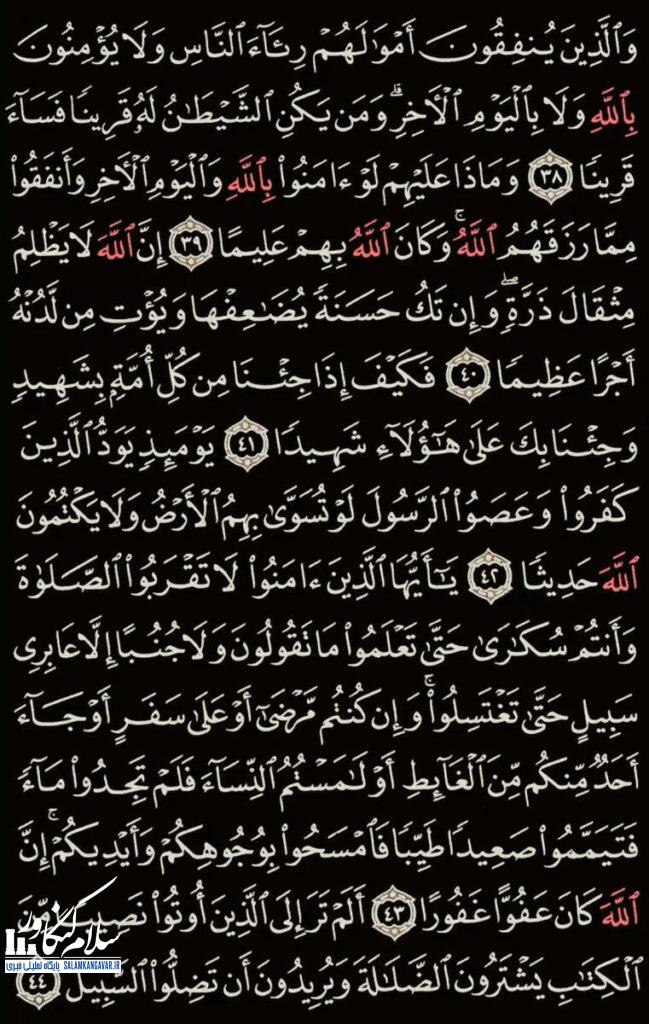 وَٱلَّذِينَ يُنفِقُونَ أَمْوَٰلَهُمْ رِئَآءَ ٱلنَّاسِ وَلَا يُؤْمِنُونَ
بِٱللَّهِ وَلَا بِٱلْيَوْمِ ٱلْأَخِرِ ۗ وَمَن يَكُنِ ٱلشَّيْطَٰنُ لَهُۥ قَرِينًا فَسَآءَ
قَرِينًا ٣٨ وَمَاذَا عَلَيْهِمْ لَوْ ءَامَنُوا۟ بِٱللَّهِ وَٱلْيَوْمِ ٱلْأَخِرِ وَأَنفَقُوا۟
مِمَّا رَزَقَهُمُ ٱللَّهُ ۚ وَكَانَ ٱللَّهُ بِهِمْ عَلِيمًا ٣٩ إِنَّ ٱللَّهَ لَا يَظْلِمُ
مِثْقَالَ ذَرَّةٍ ۖ وَإِن تَكُ حَسَنَةً يُضَٰعِفْهَا وَيُؤْتِ مِن لَّدُنْهُ
أَجْرًا عَظِيمًا ٤٠ فَكَيْفَ إِذَا جِئْنَا مِن كُلِّ أُمَّةٍۭ بِشَهِيدٍ
وَجِئْنَا بِكَ عَلَىٰ هَٰٓؤُلَآءِ شَهِيدًا ٤١ يَوْمَئِذٍ يَوَدُّ ٱلَّذِينَ
كَفَرُوا۟ وَعَصَوُا۟ ٱلرَّسُولَ لَوْ تُسَوَّىٰ بِهِمُ ٱلْأَرْضُ وَلَا يَكْتُمُونَ
ٱللَّهَ حَدِيثًا ٤٢ يَٰٓأَيُّهَا ٱلَّذِينَ ءَامَنُوا۟ لَا تَقْرَبُوا۟ ٱلصَّلَوٰةَ
وَأَنتُمْ سُكَٰرَىٰ حَتَّىٰ تَعْلَمُوا۟ مَا تَقُولُونَ وَلَا جُنُبًا إِلَّا عَابِرِى
سَبِيلٍ حَتَّىٰ تَغْتَسِلُوا۟ ۚ وَإِن كُنتُم مَّرْضَىٰٓ أَوْ عَلَىٰ سَفَرٍ أَوْ جَآءَ
أَحَدٌ مِّنكُم مِّنَ ٱلْغَآئِطِ أَوْ لَٰمَسْتُمُ ٱلنِّسَآءَ فَلَمْ تَجِدُوا۟ مَآءً
فَتَيَمَّمُوا۟ صَعِيدًا طَيِّبًا فَٱمْسَحُوا۟ بِوُجُوهِكُمْ وَأَيْدِيكُمْ ۗ إِنَّ
ٱللَّهَ كَانَ عَفُوًّا غَفُورًا ٤٣ أَلَمْ تَرَ إِلَى ٱلَّذِينَ أُوتُوا۟ نَصِيبًا مِّنَ
ٱلْكِتَٰبِ يَشْتَرُونَ ٱلضَّلَٰلَةَ وَيُرِيدُونَ أَن تَضِلُّوا۟ ٱلسَّبِيلَ ٤٤
سلام کنگاور
پایگاه تحلیلی خبری SALAMKANGAVAR.IR